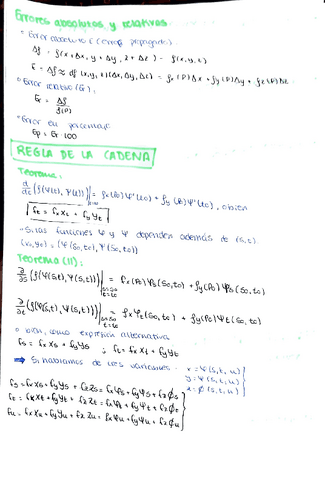 Errores absolutos y relativos
· Error absoluto E (error propagado).
Δf = f(x+Δx, y+Δy, z+Δz) - f(x,y,z)
E = Δf ≈ df(x,y,z)(Δx,Δy,Δz) = fx(P)Δx + fy(P)Δy + fz(P)Δz
· Error relativo (Er):
Er = Δf / f(P)
· Error en porcentaje
Ep = Er·100
REGLA DE LA CADENA
Teorema:
d/dt (f(φ(t), ψ(t)))| = fx(P0)φ'(t0) + fy(P0)ψ'(t0), o bien
ft = fx xt + fy yt
· Si las funciones φ y ψ dependen además de (s,t).
(x0,y0) = (φ(s0,t0), ψ(s0,t0))
Teorema (II):
∂/∂s (f(φ(s,t), ψ(s,t)))| s=s0 t=t0 = fx(P0)φs(s0,t0) + fy(P0)ψs(s0,t0)
∂/∂t (f(φ(s,t), ψ(s,t)))| s=s0 t=t0 = fx φt(s0,t0) + fy(P0)ψt(s0,t0)
o bien, como expresión alternativa
fs = fx xs + fy ys ; ft = fx xt + fy yt
⇒ Si hablamos de tres variables: x = φ(s,t,u)
y = ψ(s,t,u)
z = ϕ(s,t,u)
fs = fx xs + fy ys + fz zs = fx φs + fy ψs + fz ϕs
ft = fx xt + fy yt + fz zt = fx φt + fy ψt + fz ϕt
fu = fx xu + fy yu + fz zu = fx φu + fy ψu + fz ϕu